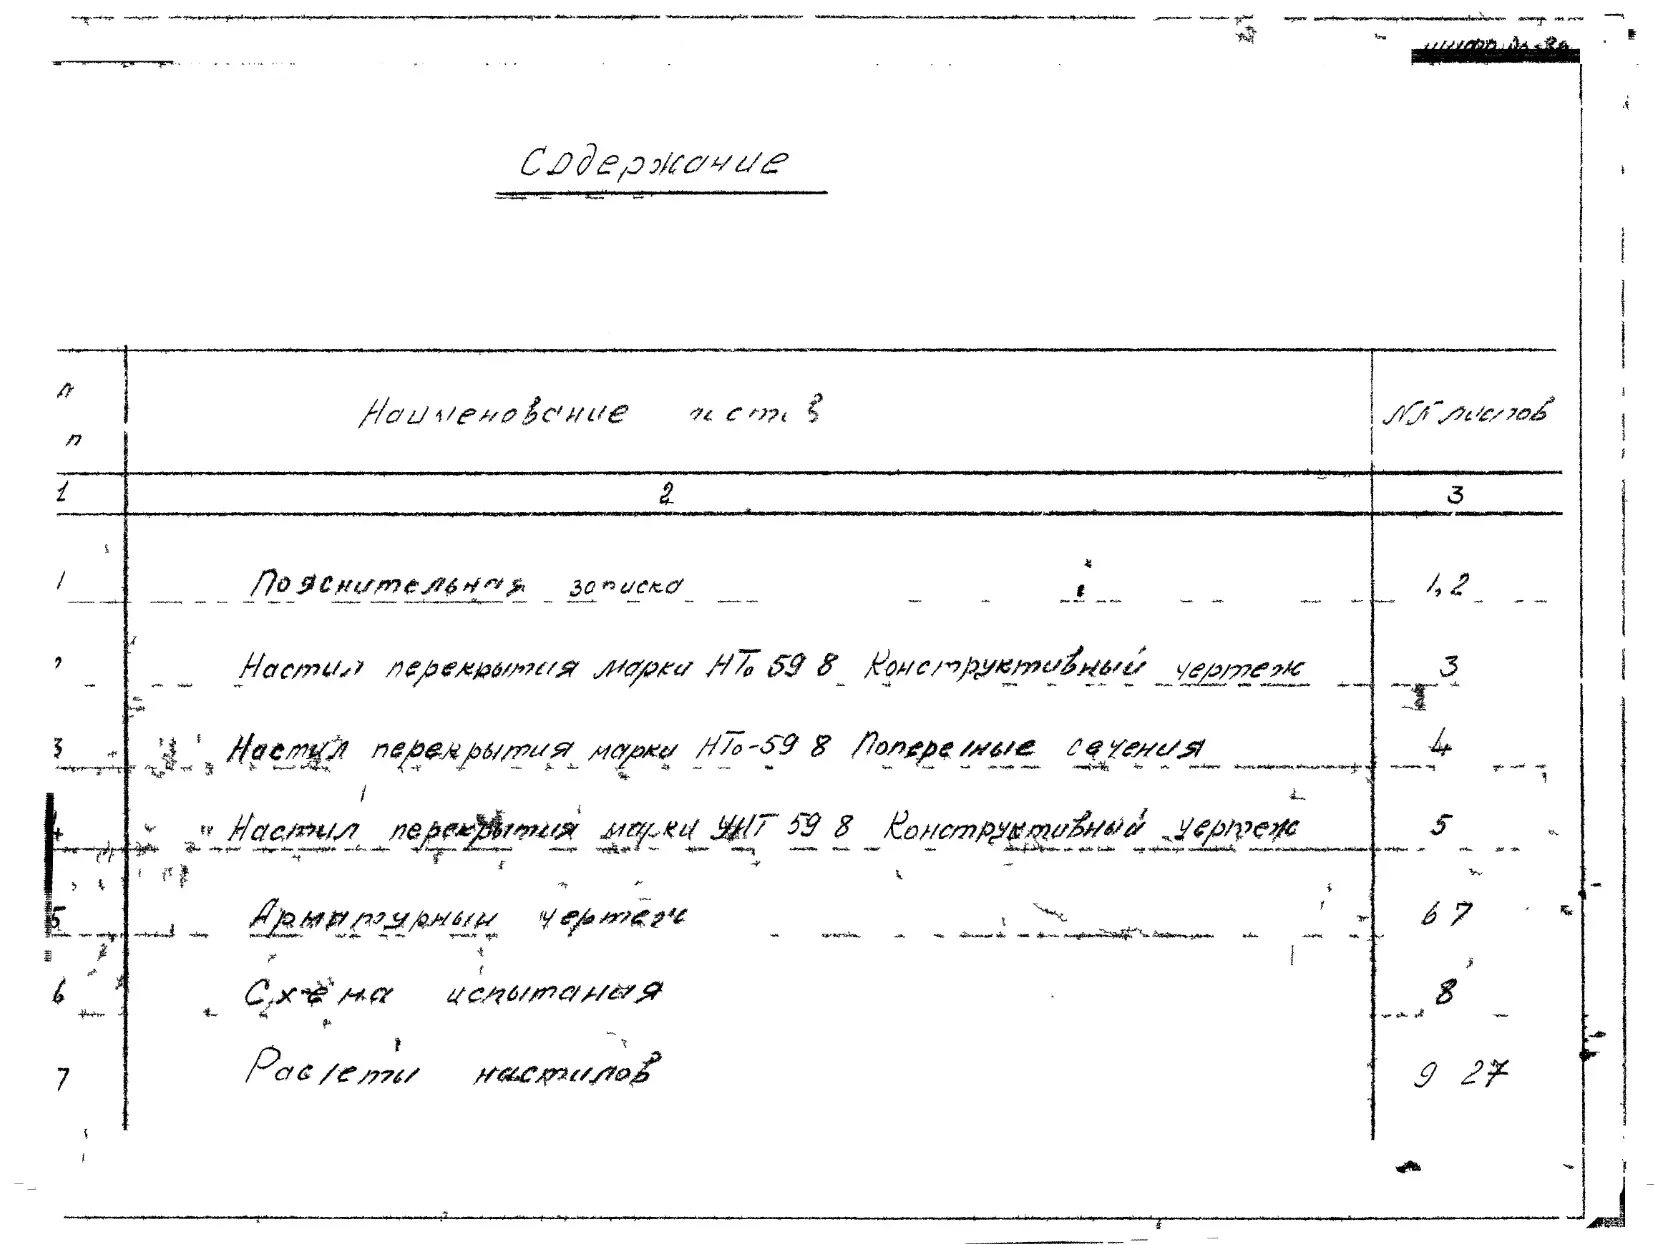 Содержание
п
п
Наименование
№№ листов
1 2 3
1 Пояснительная записка 1,2
Настил перекрытия марки НТо 59 8 Конструктивный чертеж 3
3 Настил перекрытия марки НТо-59 8 Поперечные сечения 4
4 Настил перекрытия марки УНТ 59 8 Конструктивный чертеж 5
5 Арматурный чертеж 6 7
6 Схема испытания 8
7 Расчеты настилов 9 27